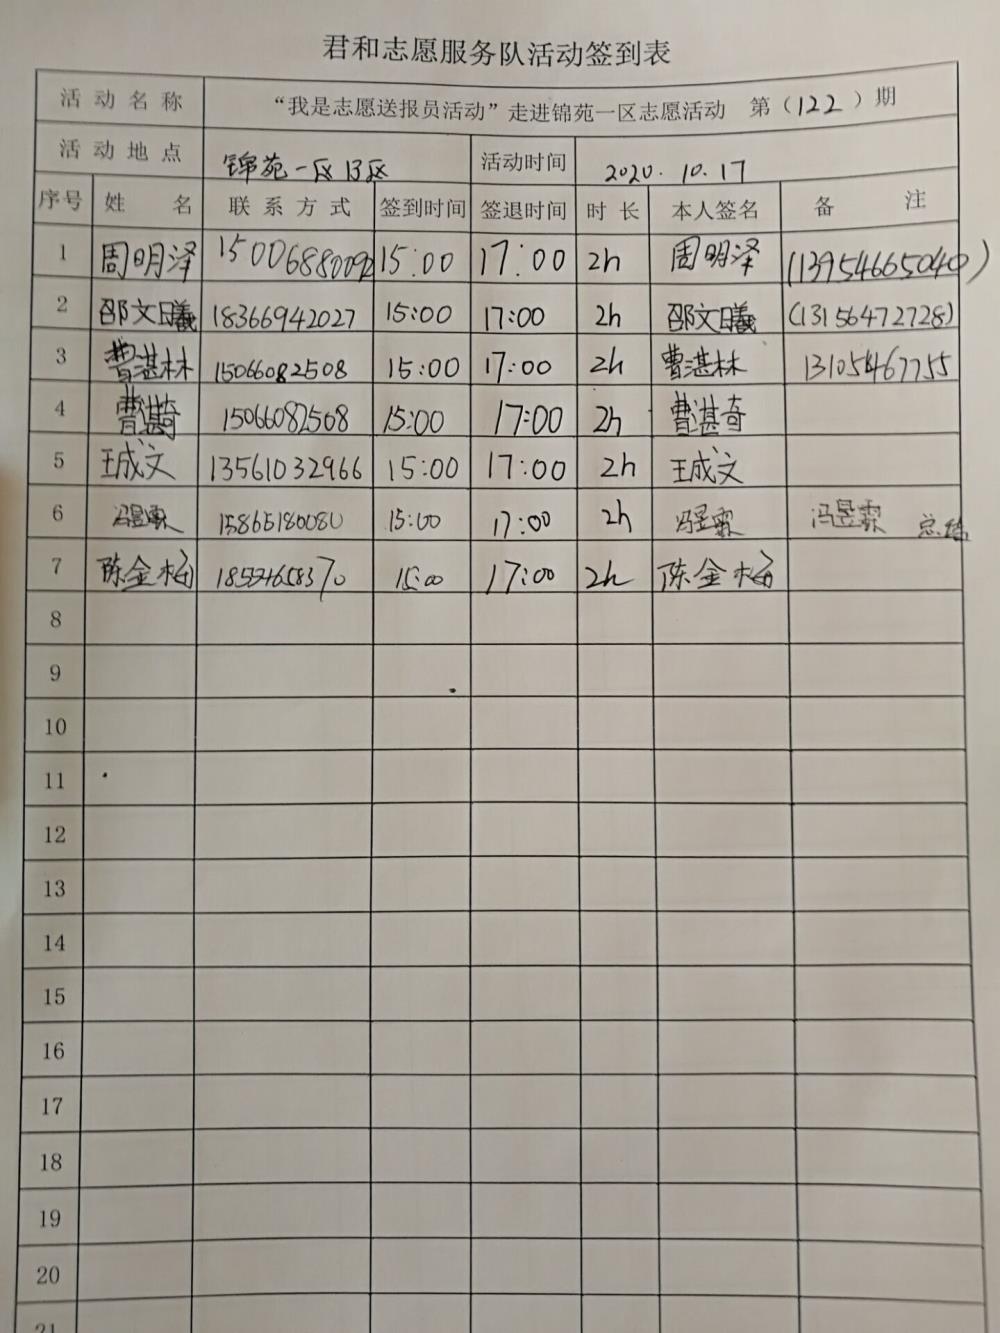 君和志愿服务队活动签到表
活动名称 “我是志愿送报员活动”走进锦苑一区志愿活动 第(122)期
活动地点 锦苑一区B区 活动时间 2020.10.17
序号 姓名 联系方式 签到时间 签退时间 时长 本人签名 备注
1 周明泽 15006880092 15:00 17:00 2h 周明泽 (13954665040)
2 邵文曦 18366942027 15:00 17:00 2h 邵文曦 (13156472728)
3 曹湛林 15066082508 15:00 17:00 2h 曹湛林 13105467755
4 曹湛奇 15066082508 15:00 17:00 2h 曹湛奇
5 王成文 13561032966 15:00 17:00 2h 王成文
6 冯昱霖 15865180080 15:00 17:00 2h 冯昱霖 冯昱霖 总结
7 陈金梅 15:00 17:00 2h 陈金梅
8
9
10
11
12
13
14
15
16
17
18
19
20
21